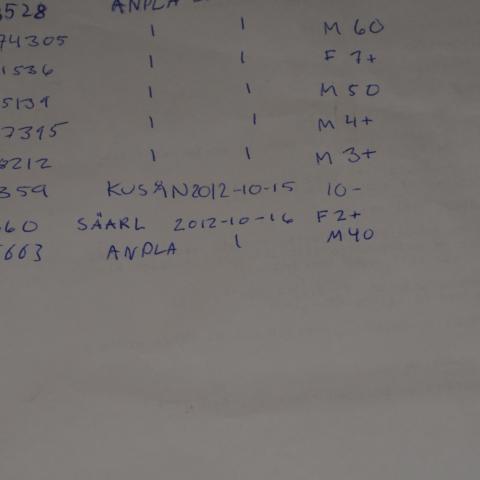 3528 ANPLA
74305 | | M 60
1536 | | F 7+
5139 | | M 50
7395 | | M 4+
8212 | | M 3+
359 KUSÅN 2012-10-15 10-
660 SÄARL 2012-10-16 F 2+
5663 ANPLA | M 40